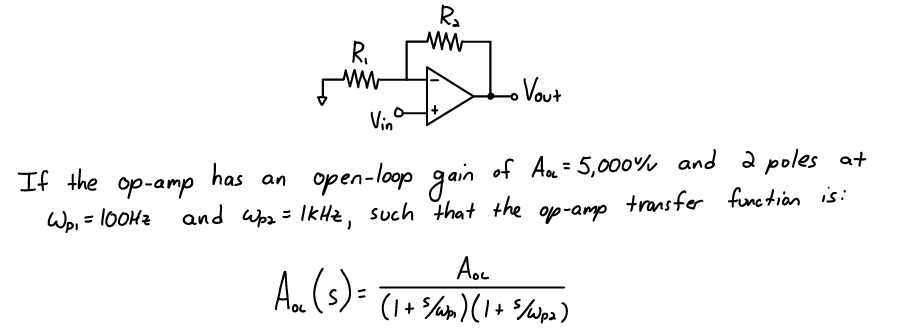 R₂
R₁
-
+
Vout
Vin
If the op-amp has an open-loop gain of AOL = 5,000 V/V and 2 poles at
ωp1 = 100Hz and ωp2 = 1kHz, such that the op-amp transfer function is:
AOL(s) = AOL / (1 + s/ωp1)(1 + s/ωp2)